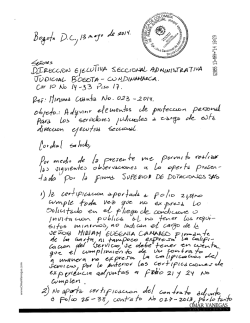 Bogota D.C, 13 mayo de 2014.
Señores
DIRECCION EJECUTIVA SECCIONAL ADMINISTRATIVA
JUDICIAL BOGOTA - CUNDINAMARCA.
Cr 10 No 14-33 Piso 17.
Ref: Minima Cuantia No. 023-2014.
Objeto: Adquirir elementos de proteccion personal
Para los servidores judiciales a cargo de esta
direccion ejecutiva seccional
Cordial saludo,
Por medio de la presente me permito realizar
las siguientes observaciones a la oferta presen-
tada por la firma SUPERIOR DE DOTACIONES SAS
1) la certificacion aportada a folio 21, no
cumple toda vez que no expresa lo
solicitado en el pliego de condiciones o
invitacion publica si no tener los requi-
sitos minimos, no indican el cargo de la
Señora MIRIAM ELBEGNA CAMARGO firmante de
la carta ni tampoco expresa la califica-
cion del servicio, se debe tener en cuenta
que el cumplimiento de un
a manera no expresa la calificacion del
servicio, por lo anterior las certificaciones de
experiencia adjuntas a folio 21 y 24 no
cumplen.
2) No aporta certificacion del contrato adjunto
a Folio 25-38, contrato No 028-2013, por lo tanto
OMAR VANEGAS